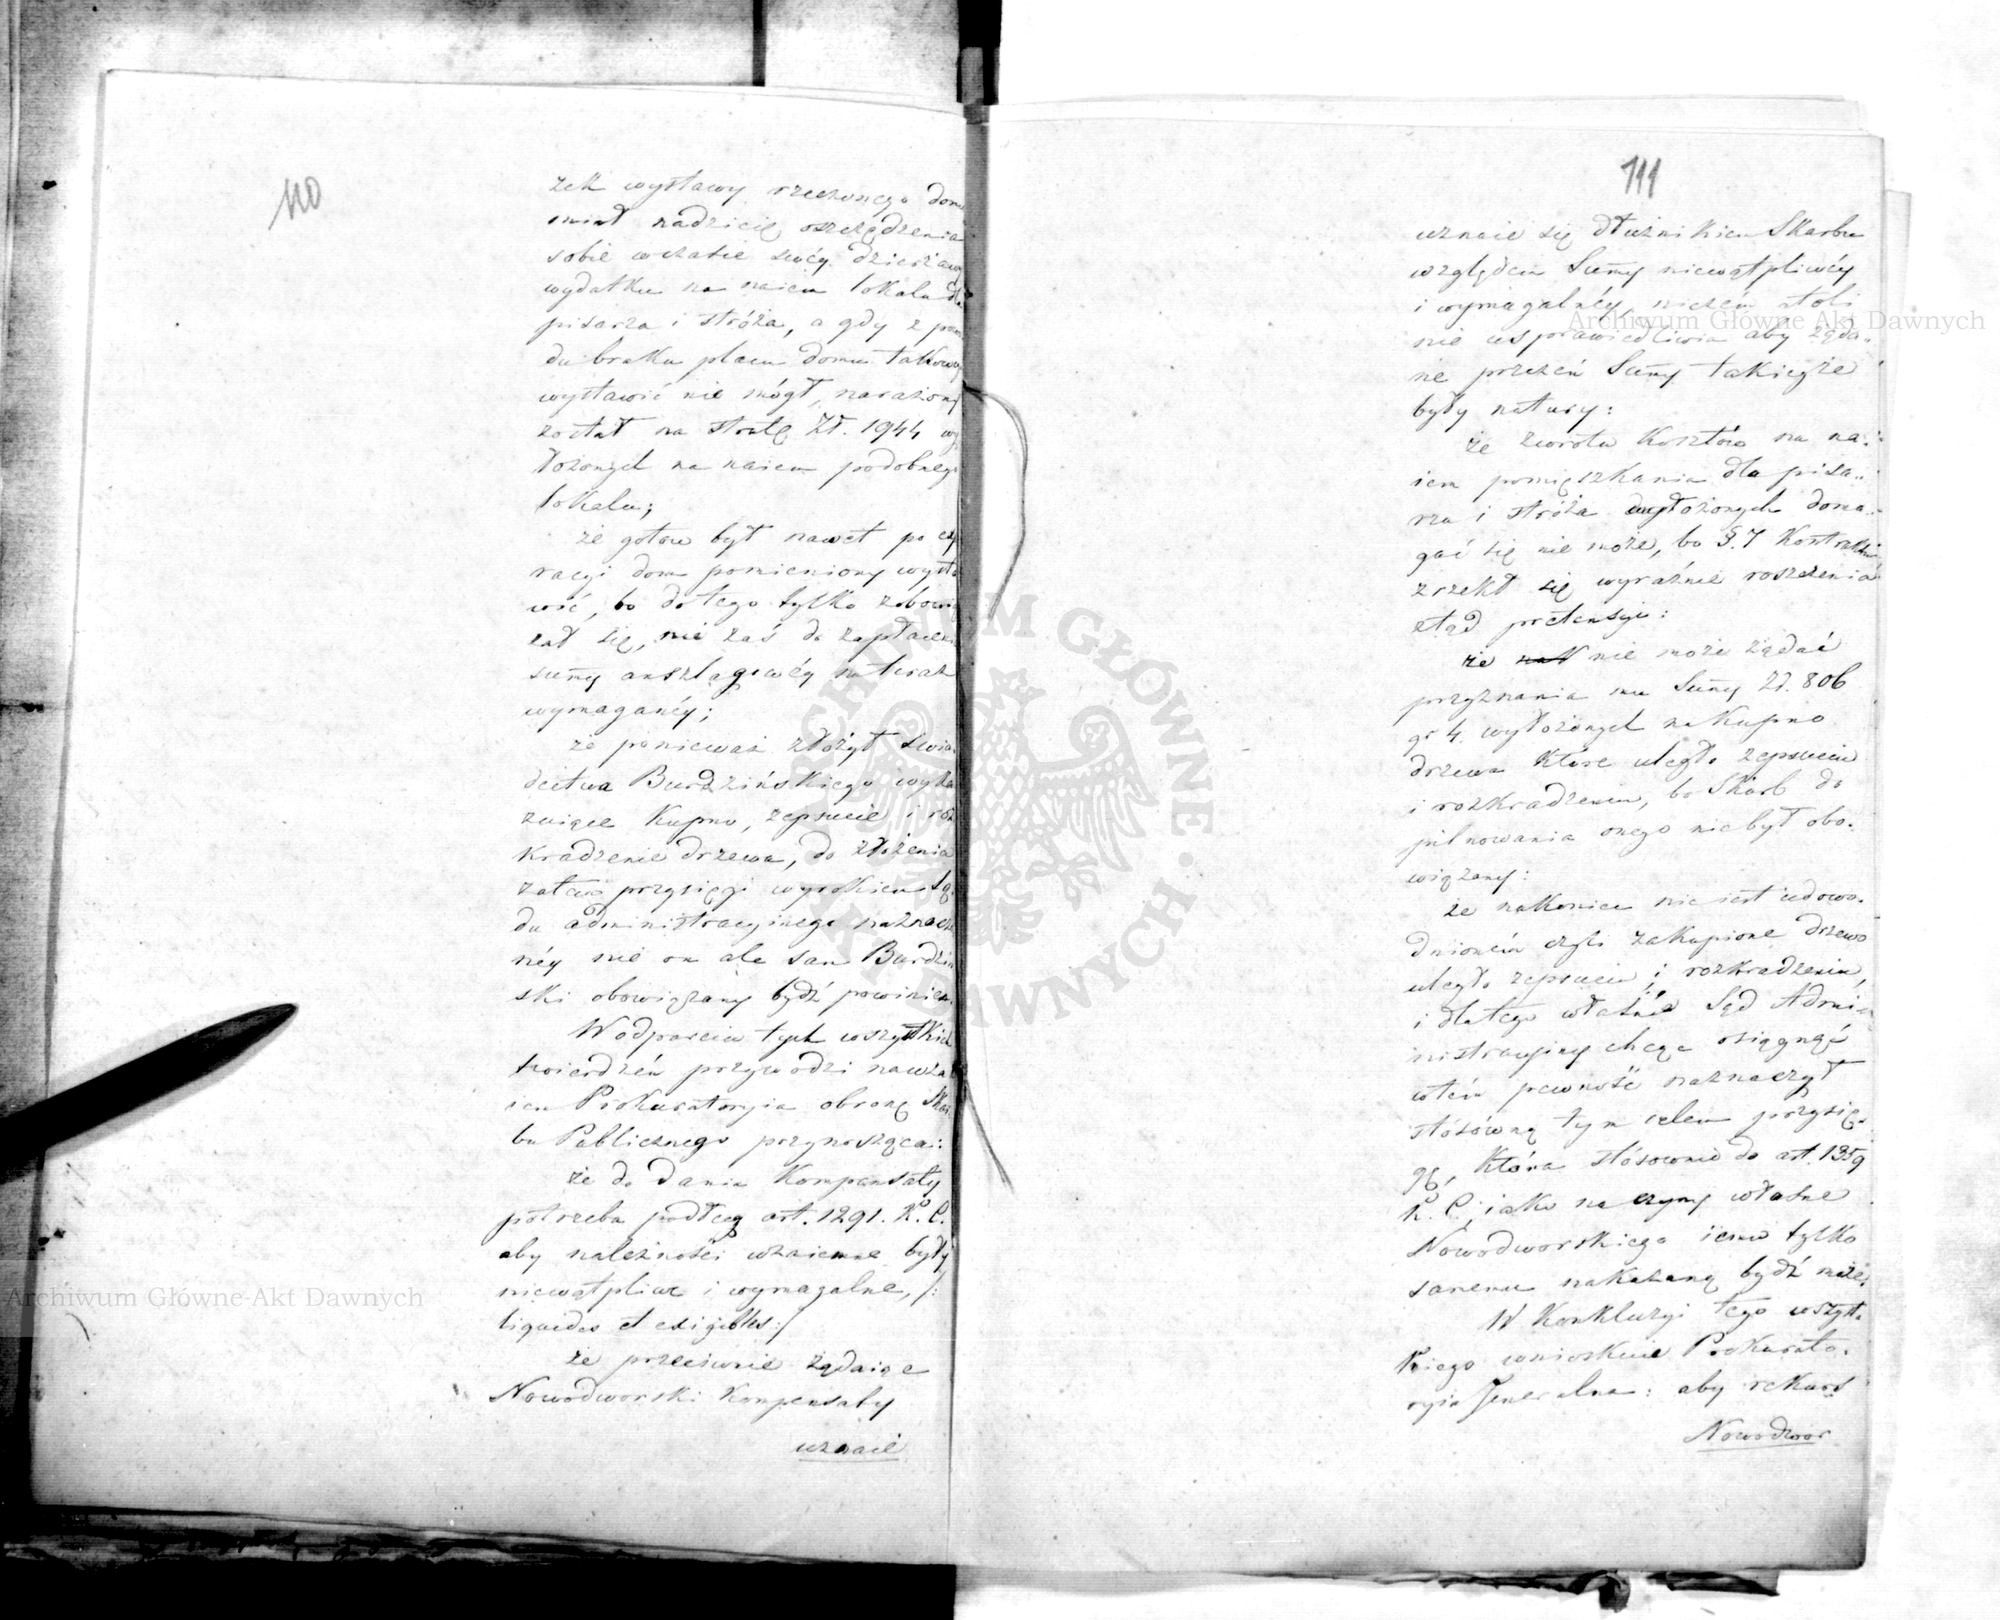 110
żek wystawy rzeczonego domu
miał nadzieię oszczędzenia
sobie wczasie swéy dzierżawy
wydatku na naiem lokalu dla
pisarza i stróża, a gdy z powo
du braku placu domu takowego
wystawić nie mógł, narażony
został na stratę Zł. 1944 wy
łożonych na naiem podobnego
lokalu;
że gotow był nawet po
racyi dom pomieniony wysta
wić, bo do tego tylko zobowią
zał się, nie zaś do zapłacenia
summy anszlagowéy na teraz
wymaganéy;
że ponieważ złożył świa
dectwa Burdzińskiego wyka
zuiące kupno, zepsucie i roz
kradzenie drzewa, do złożenia
zatem przysięgi wyrokiem Są
du administracyjnego naznaczo
néy nie on ale sam Burdziń
ski obowiązany bydź powinien.
W odparciu tych wszystkich
twierdzeń przywodzi nawza
iem Prokuratorya obronę Skar
bu Publicznego przynosząca:
że do dania Kompensaty
potrzeba podług art. 1291. K. C.
aby należności wzaiemne były
niewątpliwe i wymagalne, /:
liquides et exigibles :/
że przeciwnie żądaiąc
Nowodworski Kompensaty
uznaie
111
uznaie się dłużnikiem Skarbu
względem Summy niewątpliwéy
i wymagalnéy, niczém atoli
nie usprawiedliwia aby żąda-
ne przezeń Summy takieyże
były natury:
że zwrotu Kosztów na na-
iem pomięszkania dla pisa-
rza i stróża wyłożonych doma-
gać się nie może, bo §. 7 Kontraktu
zrzekł się wyraźnie roszczenia
ztąd pretensyi:
że nie może żądać
przyznania mu Summy Zł. 806
gr 4. wyłożonych na Kupno
drzewa które uległo zepsuciu
i rozkradzeniu, bo Skarb do
pilnowania onego nie był obo-
wiązany:
że nakoniec nie iest udowo-
dnioném czyli zakupione drzewo
uległo zepsuciu i rozkradzeniu,
i dlatego właśnie Sąd Admi-
nistracyjny chcąc osiągnąć
wtém pewność naznaczył
stósowną tym celem przysię-
gę, która stósownie do art. 1359
K. C. iako na czyny własne
Nowodworskiego iemu tylko
samemu nakazaną bydź może.
W Konkluzyi tego wszyst-
kiego wnioskuie Prokurato-
rya Jeneralna: aby rekurs
Nowodwor
Archiwum Główne Akt Dawnych
Archiwum Główne Akt Dawnych
ARCHIWUM GŁÓWNE AKT DAWNYCH